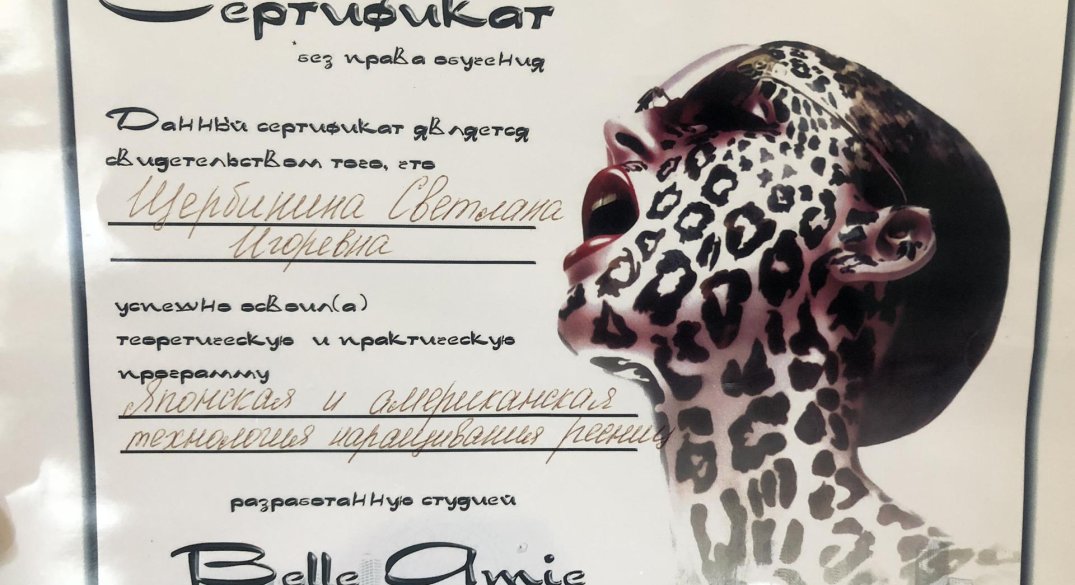 Сертификат
без права обучения
Данный сертификат является
свидетельством того, что
Щербинина Светлана
Игоревна
успешно освоил(а)
теоретическую и практическую
программу
Японская и американская
технология наращивания ресниц
разработанную студией
Belle Amie